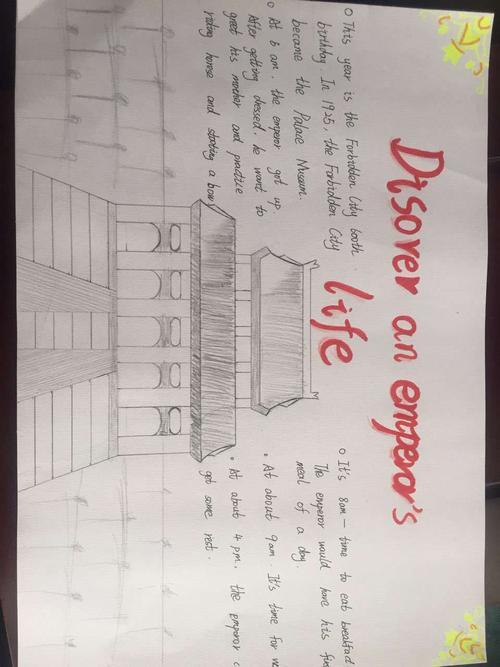 Disover an emperor's
life
o This year is the Forbidden City 600th
birthday. In 1925, the Forbidden City
became the Palace Museum.
o At 6 am. the emperor got up
After getting dressed, he went to
greet his mother and practice
riding horse and
o It's 8am — time to eat
The emperor would have his
meal of a day.
• At about 9am. It's time for
• At about 4 pm. the emperor
got some rest.